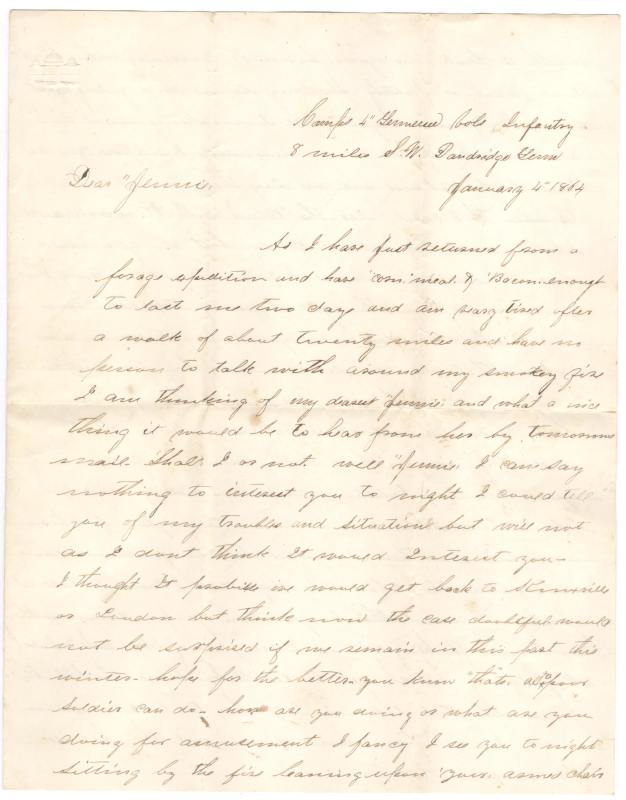 Camp 4" Tennessee Vols Infantry
8 miles S.W. Dandridge Tenn
January 4" 1864
Dear "Jennie"
As I have just returned from a
forage expedition and have "corn" meal & "Bacon" enough
to last me two days and am very tired after
a walk of about twenty miles and have no
person to talk with around my smokey fire
I am thinking of my dearest "Jennie" and what a nice
thing it would be to hear from her by tomorrows
mail. Shall I or not. well "Jennie" I can say
nothing to interest you to night I could tell
you of my troubles and situation but will not
as I dont think It would Interest you-
I thought It probible we would get back to Knoxville
or Loudon but think now the case doubtful would
not be surprised if we remain in this part this
winter- hope for the better- you know "thats" all poor
soldier can do- how are you doing or what are you
doing for amusement I fancy I see you to night
sitting by the fire leaning upon "your" armed chair